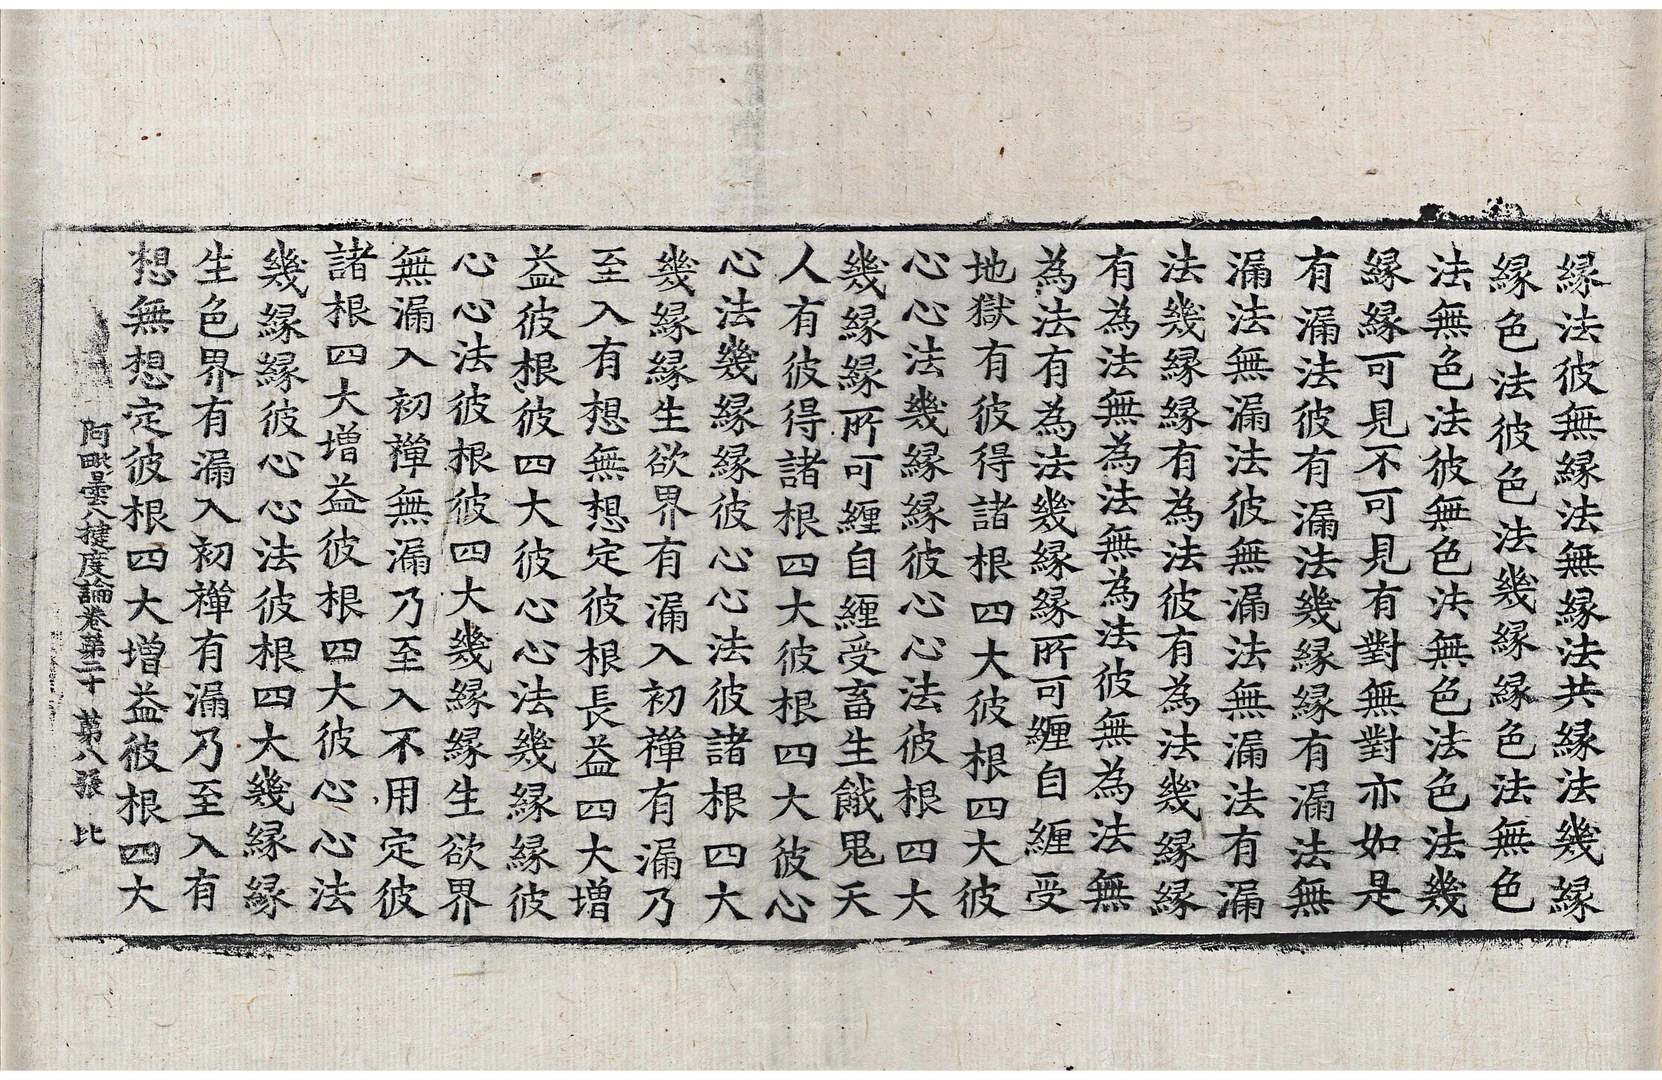 縁法彼無縁法無縁法共縁法幾縁
縁色法彼色法幾縁縁色法無色
法無色法彼無色法無色法色法幾
縁縁可見不可見有對無對亦如是
有漏法彼有漏法幾縁縁有漏法無
漏法無漏法彼無漏法無漏法有漏
法幾縁縁有為法彼有為法幾縁縁
有為法無為法無為法彼無為法無
為法有為法幾縁縁所可纏自纏受
地獄有彼得諸根四大彼根四大彼
心心法幾縁縁彼心心法彼根四大
幾縁縁所可纏自纏受畜生餓鬼天
人有彼得諸根四大彼根四大彼心
心法幾縁縁彼心心法彼諸根四大
幾縁縁生欲界有漏入初禪有漏乃
至入有想無想定彼根長益四大增
益彼根彼四大彼心心法幾縁縁彼
心心法彼根彼四大幾縁縁生欲界
無漏入初禪無漏乃至入不用定彼
諸根四大增益彼根四大彼心心法
幾縁縁彼心心法彼根四大幾縁縁
生色界有漏入初禪有漏乃至入有
想無想定彼根四大增益彼根四大
阿毗曇八揵度論卷第二十 第八張 比